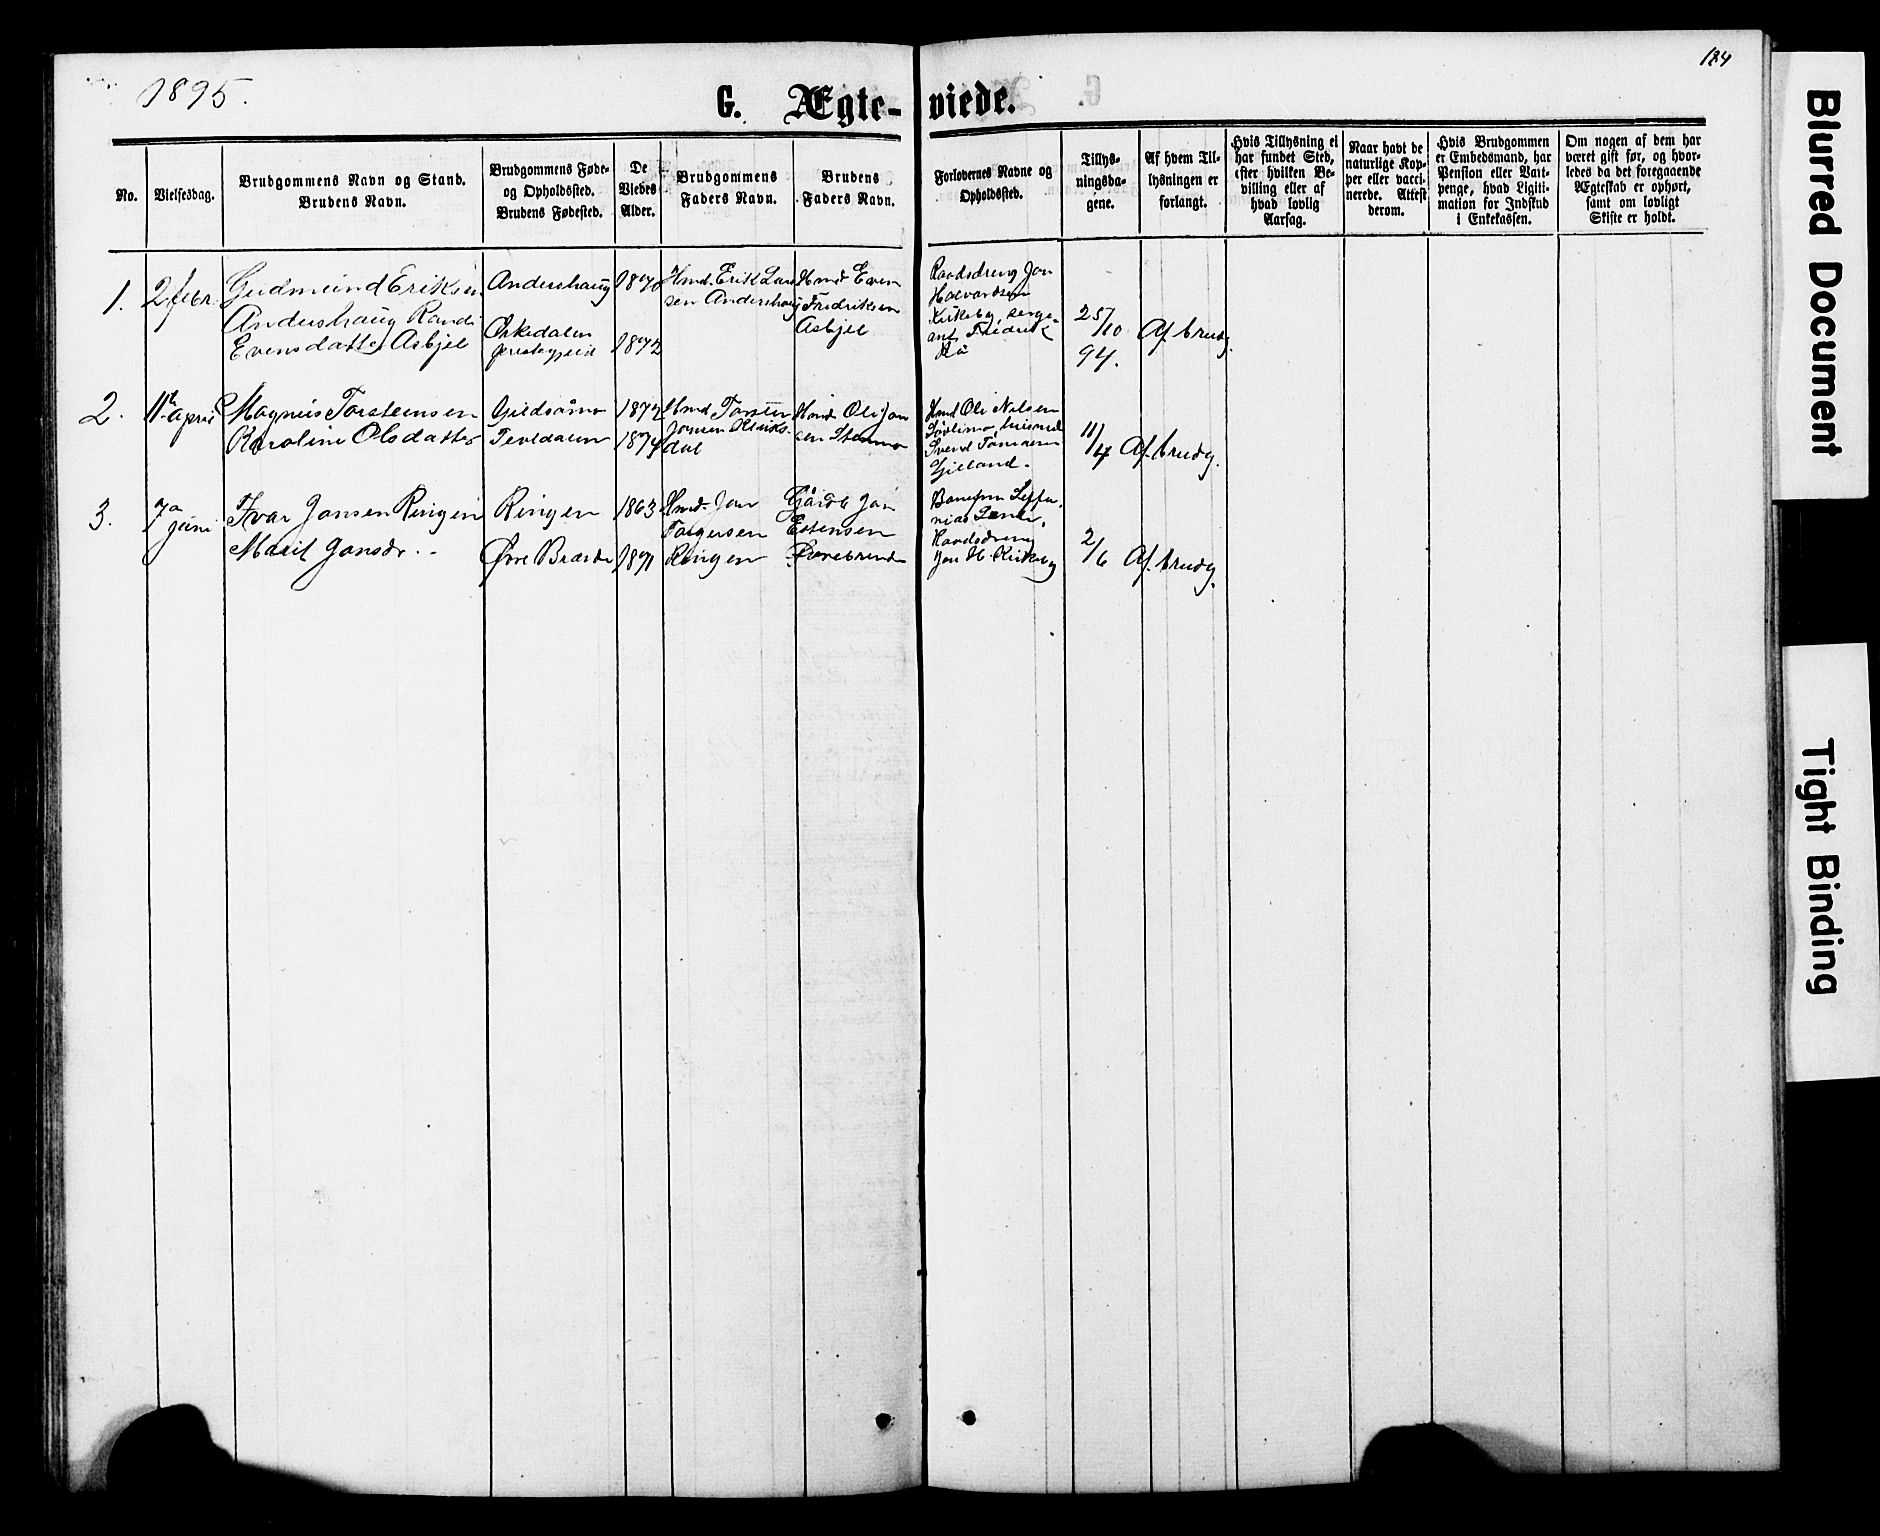 1895.
184
G. Ægte-viede.
No.
Vielsesdag.
Brudgommens Navn og Stand.
Brudens Navn.
Brudgommens Føde-
og Opholdssted.
Brudens Fødested.
De
Viedes
Alder.
Brudgommens
Faders Navn.
Brudens
Faders Navn.
Forlovernes Navne og
Opholdssted.
Tillys-
ningsda-
gene.
Af hvem Til-
lysningen er
forlangt.
Hvis Tillysning ei
har fundet Sted,
efter hvilken Be-
villing eller af
hvad lovlig
Aarsag.
Naar havt de
naturlige Kop-
per eller vacci-
nerede. Attest
derom.
Hvis Brudgommen
er Embedsmand, har
Pension eller Vart-
penge, hvad Ligiti-
mation for Indskud
i Enkekassen.
Om nogen af dem har
været gift før, og hvor-
ledes da det foregaaende
Ægteskab er ophørt,
samt om lovligt
Skifte er holdt.
1.
2 febr.
Gudmund Eriksen
Andershaug Randi
Evensdatter Asbjel
Andershaug
Orkedalen
præstegjeld
1870
1872
Hmd. Erik Lars
sen Andershaug
Hmd Even
Fredriksen
Asbjel
Raadsdreng Jon
Halvardsen
Kirkeby, serge-
ant Fredrik
25/10
94.
Af brudg.
2.
11te april
Magnus Torsteinsen
Karoline Olsdatter
Gieldsåmo
Tevldalen
1872
1874
Hmd Torsten
Jonsen
dal
Hmd Ole Jon
sen Stenmo
Hmd Ole Nilsen
husmd
Svend
11/4
Af brudg.
3.
7a juni
Ivar Jonsen Ringen
Marit Jonsdr. ..
Ringen
Øvre
1863
1871
Hmd. Jon
Torgersen
Ringen
Gårdb Jon
Estensen
Raadsdreng
Jon H. Kirkeby
2/6
Af. brudg.
Blurred Document
Tight Binding